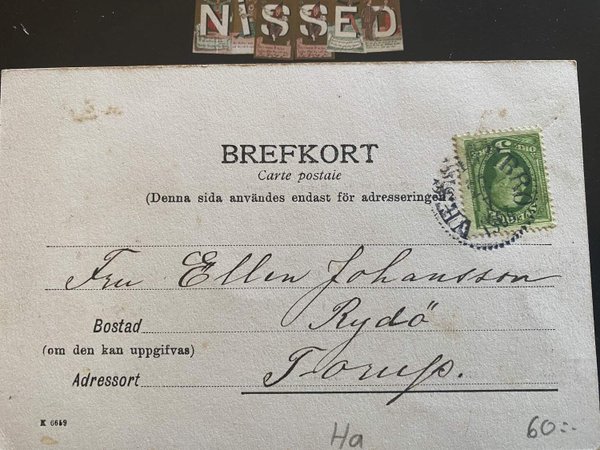 NISSED
BREFKORT
Carte postaie
(Denna sida användes endast för adresseringen
Fru Ellen Johansson
Bostad Rydö
(om den kan uppgifvas)
Adressort Torup.
K 6649
Ha 60:-